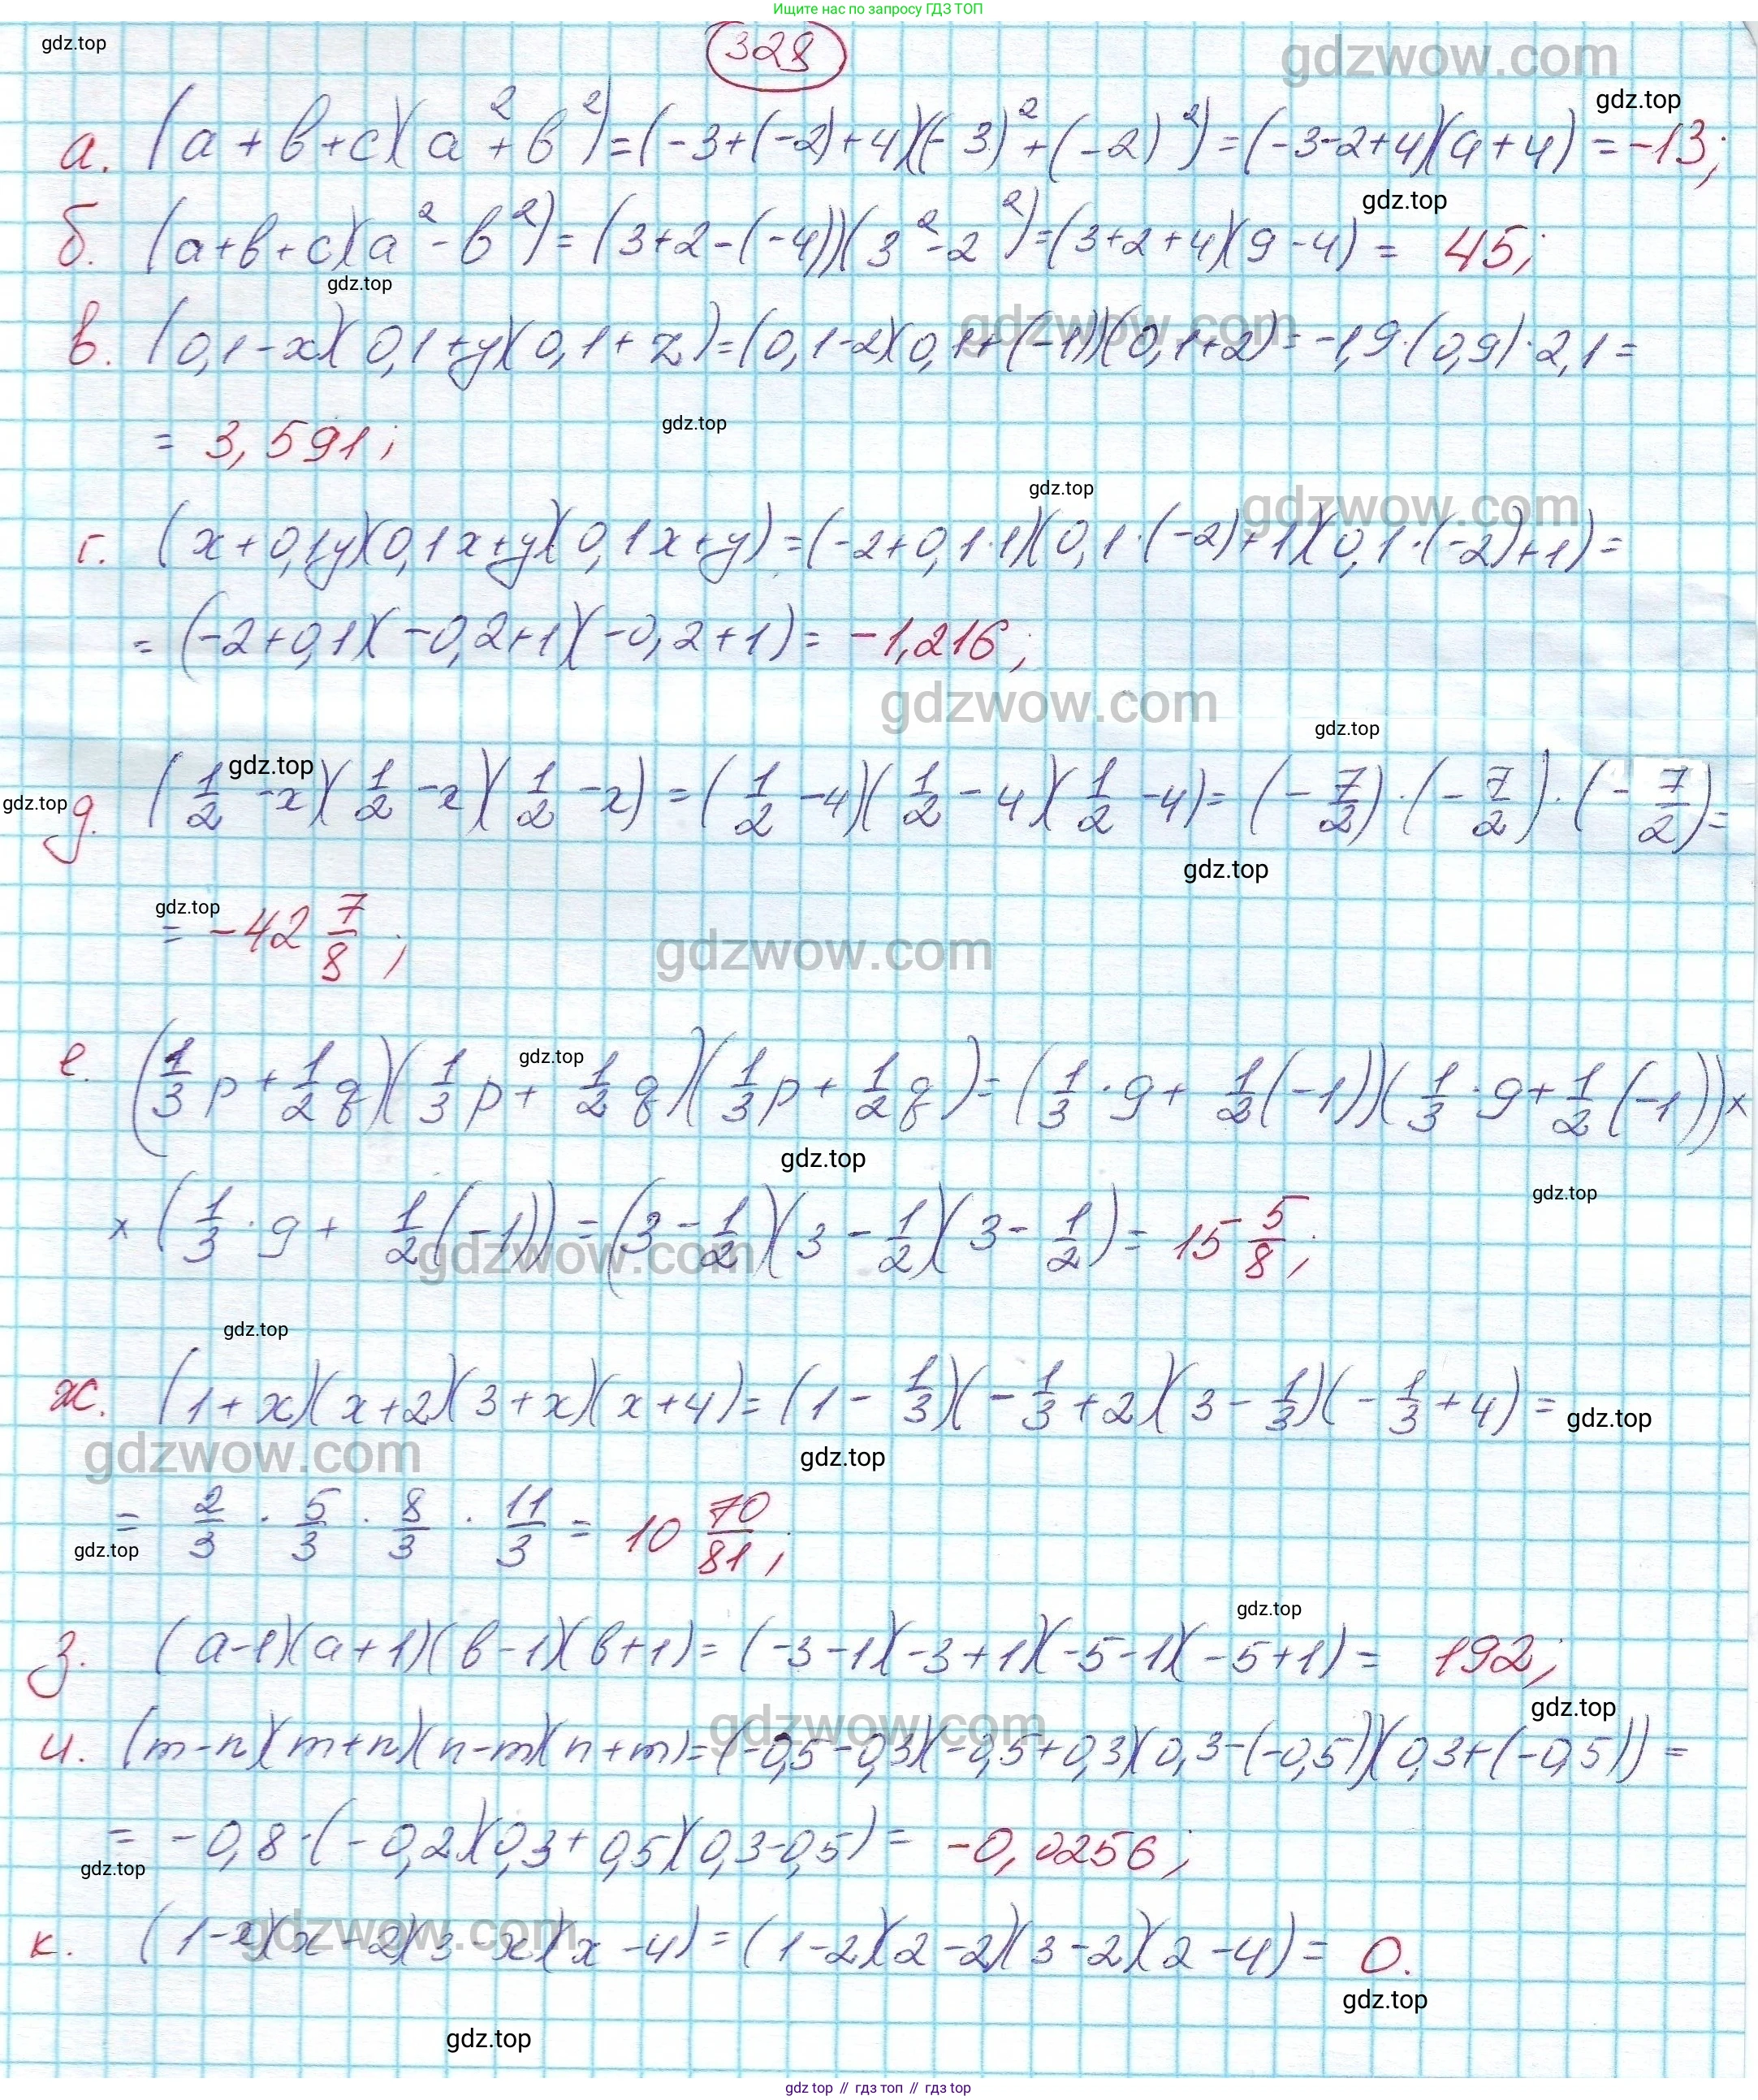 Ищите нас по запросу ГДЗ ТОП
gdz.top
328
gdzwow.com
gdz.top
а. (a+b+c)(a²+b²)=(-3+(-2)+4)((-3)²+(-2)²)=(-3-2+4)(9+4)=-13;
gdz.top
б. (a+b+c)(a²-b²)=(3+2-(-4))(3²-2²)=(3+2+4)(9-4)= 45;
gdz.top
gdzwow.com
в. (0,1-x)(0,1+y)(0,1+z)=(0,1-2)(0,1+(-1))(0,1+2)=-1,9·(0,9)·2,1=
gdz.top
= 3,591;
gdz.top
gdzwow.com
г. (x+0,1y)(0,1x+y)(0,1x+y)=(-2+0,1·1)(0,1·(-2)+1)(0,1·(-2)+1)=
=(-2+0,1)(-0,2+1)(-0,2+1)= -1,216;
gdzwow.com
gdz.top
gdz.top
gdz.top
д. (1/2-x)(1/2-x)(1/2-x)=(1/2-4)(1/2-4)(1/2-4)=(-7/2)·(-7/2)·(-7/2)=
gdz.top
gdz.top
= -42 7/8;
gdzwow.com
gdz.top
е. (1/3p+1/2q)(1/3p+1/2q)(1/3p+1/2q)=(1/3·9+1/2(-1))(1/3·9+1/2(-1))×
gdz.top
gdz.top
×(1/3·9+1/2(-1))=(3-1/2)(3-1/2)(3-1/2)= 15 5/8;
gdzwow.com
gdz.top
ж. (1+x)(x+2)(3+x)(x+4)=(1-1/3)(-1/3+2)(3-1/3)(-1/3+4)=
gdz.top
gdzwow.com
gdz.top
= 2/3 · 5/3 · 8/3 · 11/3 = 10 70/81;
gdz.top
gdz.top
з. (a-1)(a+1)(b-1)(b+1)=(-3-1)(-3+1)(-5-1)(-5+1)= 192;
gdz.top
gdzwow.com
и. (m-n)(m+n)(n-m)(n+m)=(-0,5-0,3)(-0,5+0,3)(0,3-(-0,5))(0,3+(-0,5))=
= -0,8·(-0,2)(0,3+0,5)(0,3-0,5)= -0,0256;
gdz.top
gdzwow.com
к. (1-x)(x-2)(3-x)(x-4)=(1-2)(2-2)(3-2)(2-4)= 0.
gdz.top
gdz.top
gdz top // гдз топ // gdz top